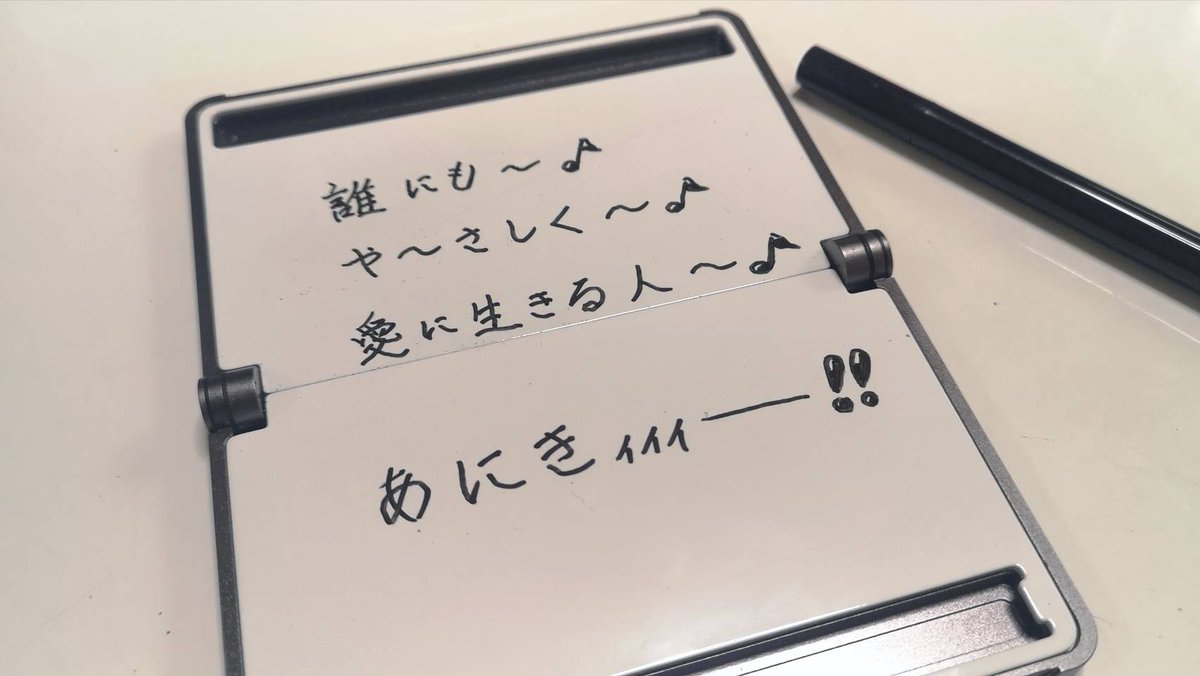 誰にも～♪
や～さしく～♪
愛に生きる人～♪
あにきィィィ――!!